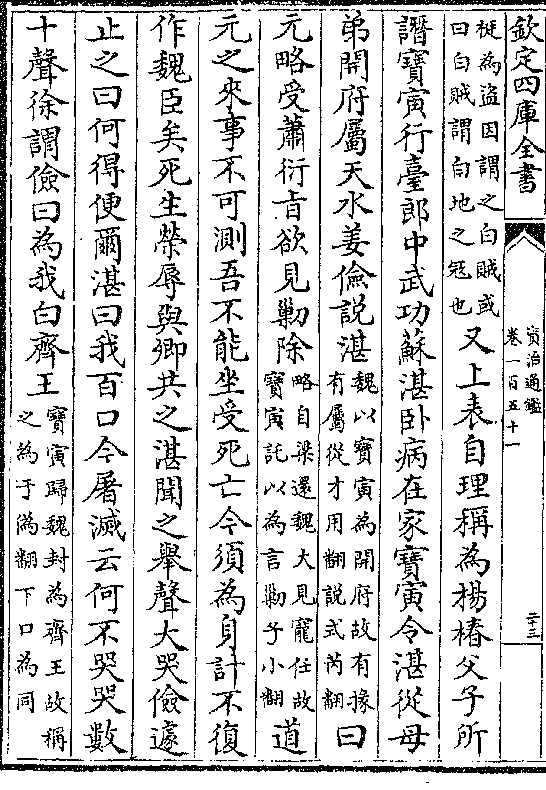 欽定四庫全書
資治通鑑
卷一百五十一
二十三
梃為盜因謂之白賊或
曰白賊謂白地之冦也
又上表自理稱為楊椿父子所
譖寶寅行臺郎中武功蘇湛卧病在家寶寅令湛從母
弟開府屬天水姜儉說湛
魏以寶寅為開府故有掾
有屬從才用翻說式芮翻
曰
元略受蕭衍㫖欲見勦除
略自梁還魏大見寵任故
寶寅託以為言勦子小翻
道
元之來事不可測吾不能坐受死亡今須為身計不復
作魏臣矣死生榮辱與卿共之湛聞之舉聲大哭儉遽
止之曰何得便爾湛曰我百口今屠滅云何不哭哭數
十聲徐謂儉曰為我白齊王
寶寅歸魏封為齊王故稱
之為于偽翻下口為同